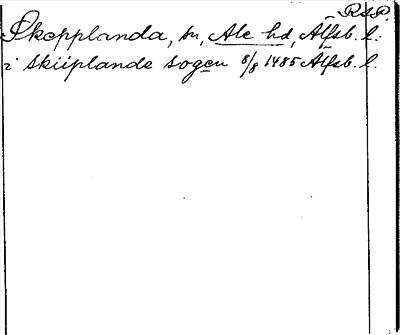 RSP.
Skepplanda, sn, Ale hd, Älfsb. l.
i skiiplande sogen 8/8 1485 Älfsb. l.